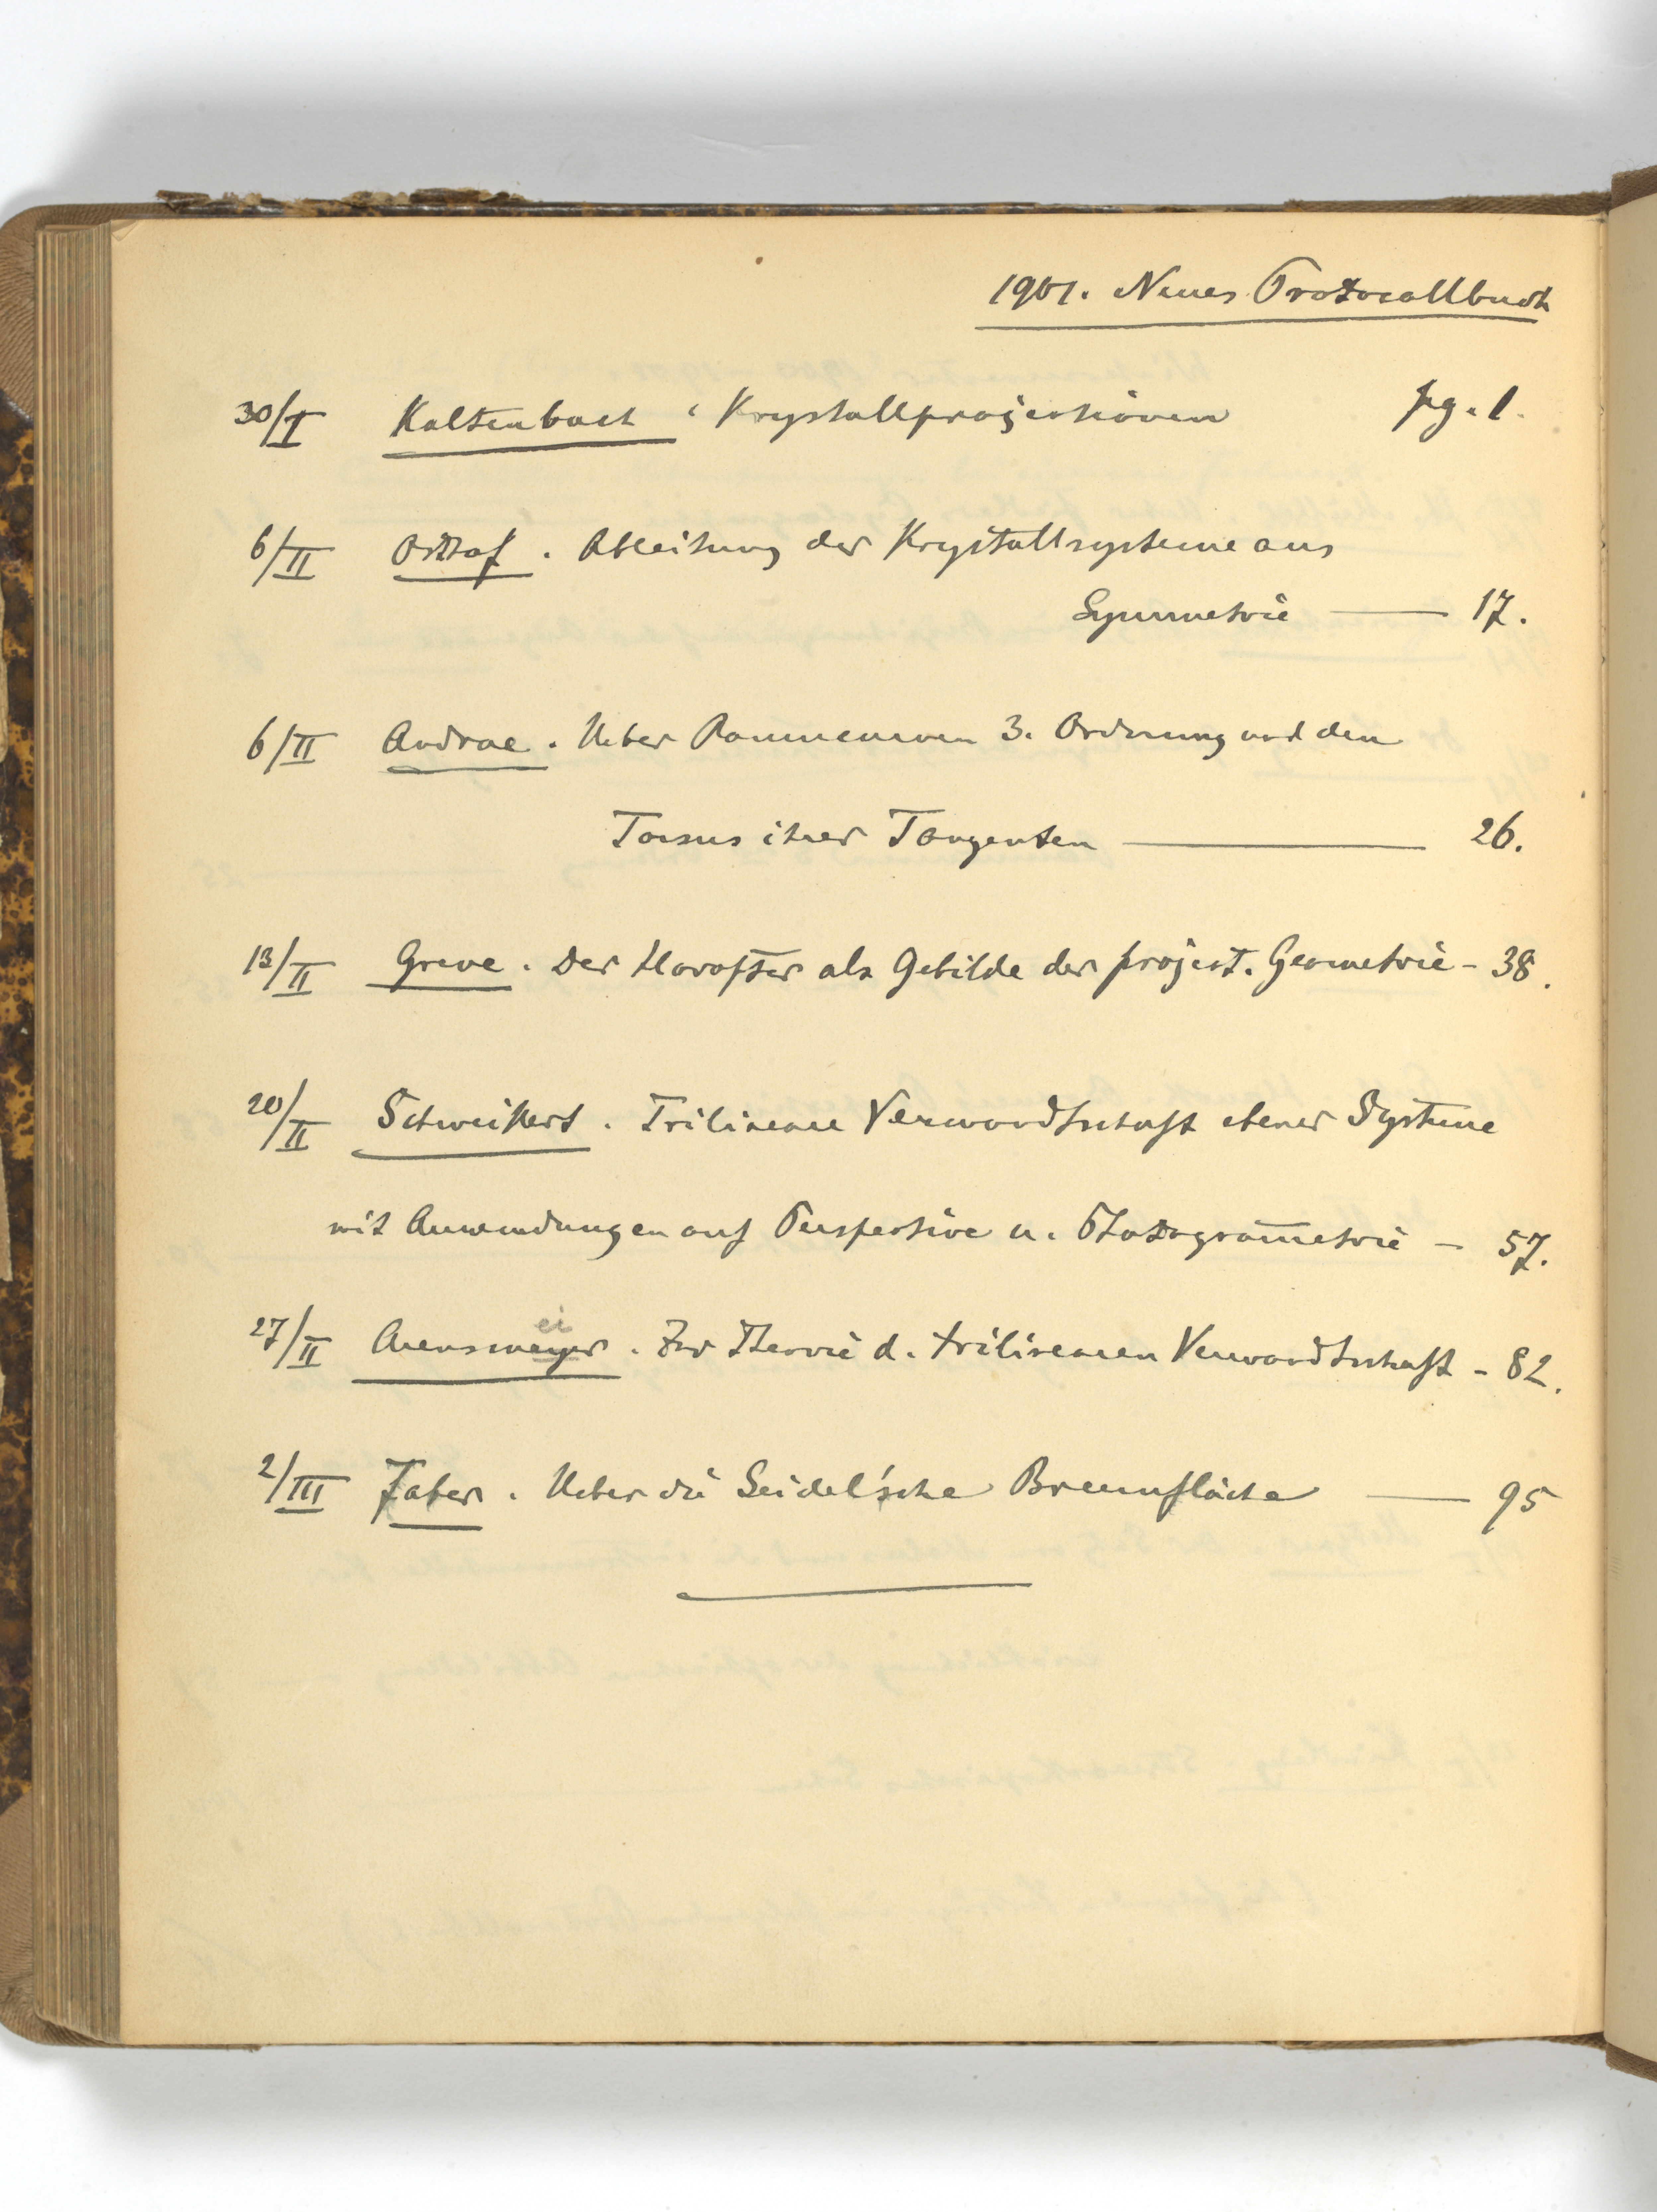 1901. Neues Protocollbuch
30/I Kaltenbach . Krystallprojectionen pg. 1.
6/II Osthof . Ableitung der Krystallsysteme aus
Symmetrie — 17.
6/II Andrae . Ueber Raumcurven 3. Ordnung und den
Torsus ihrer Tangenten — 26.
13/II Greve . Der Horopter als Gebilde der project. Geometrie - 38.
20/II Schweikert . Trilineare Verwandtschaft ebener Systeme
mit Anwendungen auf Perspective u. Photogram̅etrie — 57.
27/II Arensmeyer . Zur Theorie d. trilinearen Verwandtschaft - 82.
ei
2/III Faber . Ueber die Seidel'sche Brennfläche — 95